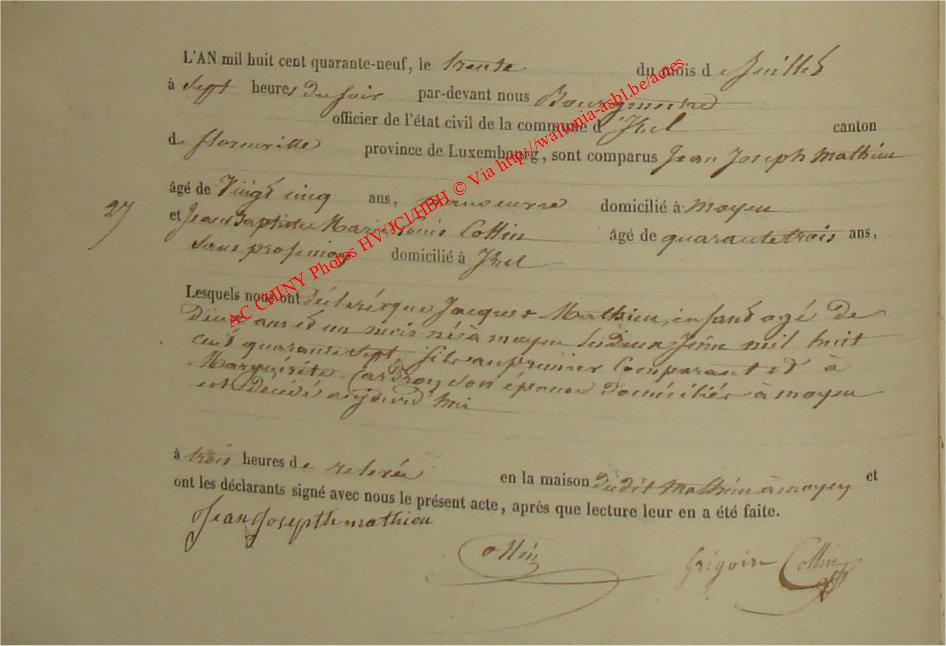 L'AN mil huit cent quarante-neuf, le trente du mois de Juillet
à sept heures du soir par-devant nous Bourgmestre
officier de l'état civil de la commune d'Izel canton
de florenville province de Luxembourg, sont comparus Jean Joseph Mathieu
âgé de Vingt cinq ans, manoeuvre domicilié à moyen
27
et Jean Baptiste Marie Louis Collin âgé de quarante trois ans,
sans profession domicilié à Izel
Lesquels nous ont déclaré que Jacques Mathieu, enfant agé de
Deux ans et un mois né à moyen le deux Juin mil huit
cent quarante sept, fils au premier Comparant et à
Marguerite Cardron son epouse domiciliés à moyen
est décédé aujourd'hui
à trois heures de relevée en la maison dudit Mathieu à moyen et
ont les déclarants signé avec nous le présent acte, après que lecture leur en a été faite.
Jean Josepth mathieu
Collin Grégoire Collin
AC CHINY Photos HV/JCl/HBH © Via http://wallonia-asbl.be/actes